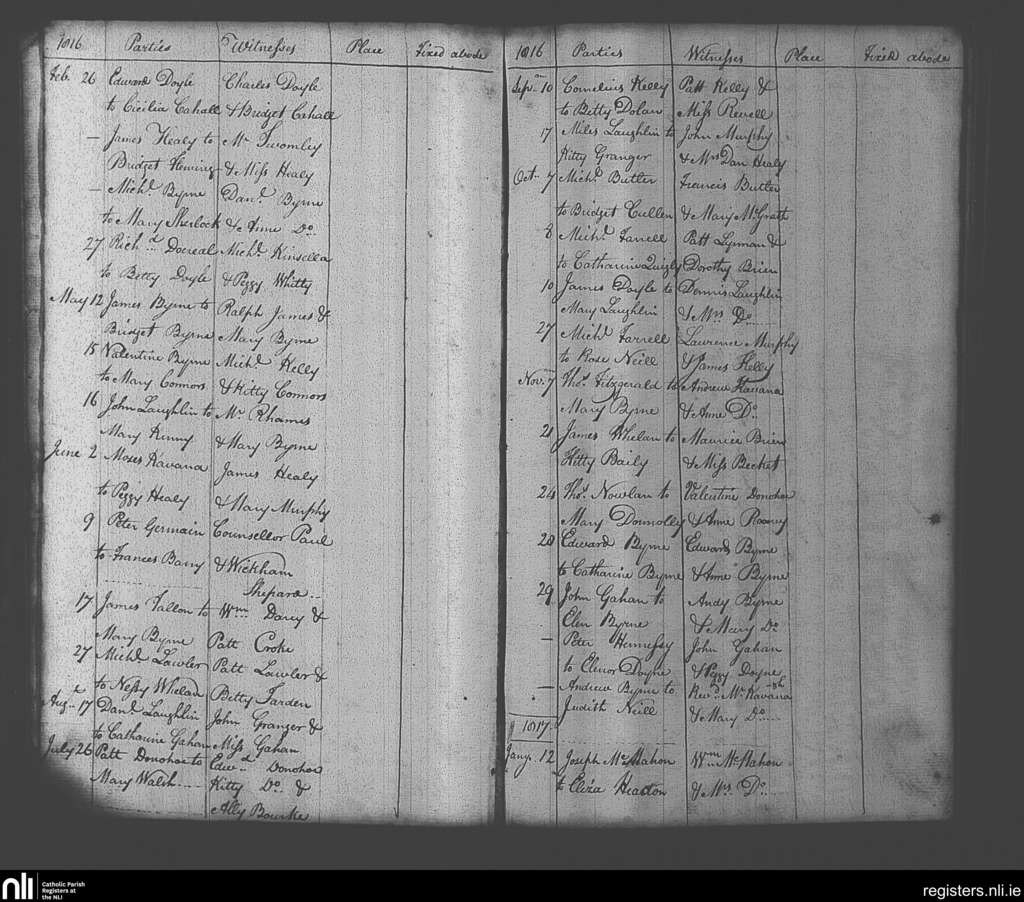 1816 Parties Witnesses Place Fixed abode
Feb. 26 Edward Doyle Charles Doyle
to Cicilia Cahall & Bridget Cahall
— James Healy to Mr. Twomley
Bridget Fleming & Miss Healy
— Michl. Byrne Danl. Byrne
to Mary Sherlock & Anne Do.
27 Richd. Michl. Kinsella
to Betty Doyle & Peggy Whitty
May 12 James Byrne to Ralph James &
Bridget Byrne Mary Byrne
15 Valentine Byrne Michl. Kelly
to Mary Connors & Kitty Connors
16 John Laughlin to Mr. Rhames
Mary Kinny & Mary Byrne
June 2 Moses Kavana James Healy
to Peggy Healy & Mary Murphy
9 Peter Germain Counsellor Paul
to Frances Barry & Wickham
Shepard
17 James Fallon to Wm. Darcy &
Mary Byrne Patt Croke
27 Michl. Lawler Patt Lawler &
to Nessy Whelan Betty Tarden
Augt. 17 Danl. Laughlin John Granger &
to Catharine Gahan Miss Gahan
July 26 Patt Donohoe to Edwd. Donohoe
Mary Walsh Kitty Do. &
Ally Bourke
1816 Parties Witnesses Place Fixed abode
Sep. 10 Cornelius Kelly Patt Kelly &
to Betty Dolan Miss Revell
17 Miles Laughlin to John Murphy
Kitty Granger & Mrs. Dan Healy
Oct. 7 Michl. Butler Francis Butler
to Bridget Cullen & Mary McGrath
8 Michl. Farrell Patt Lyman &
to Catharine Quigly Dorothy Brien
10 James Doyle to Dennis Laughlin
Mary Laughlin & Mrs. Do.
27 Michl. Farrell Lawrence Murphy
to Rose Neill & James Kelly
Nov. 7 Thos. Fitzgerald to Andrew Kavana
Mary Byrne & Anne Do.
21 James Whelan to Maurice Brien
Kitty Baily & Miss Becket
24 Thos. Nowlan to Valentine Donohoe
Mary Donnolly & Anne Rooney
28 Edward Byrne Edward Byrne
to Catharine Byrne & Anne Byrne
29 John Gahan to Andy Byrne
Elen Byrne & Mary Do
— Peter Hennessy John Gahan
to Elenor Doyne & Peggy Doyne
— Andrew Byrne to Revd. Mr. Kavanagh
Judith Neill & Mary Do.
1817
Jany. 12 Joseph McMahon Wm. McMahon
to Eliza Heatton & Mrs. Do.
nli Catholic Parish
Registers at
the NLI
registers.nli.ie